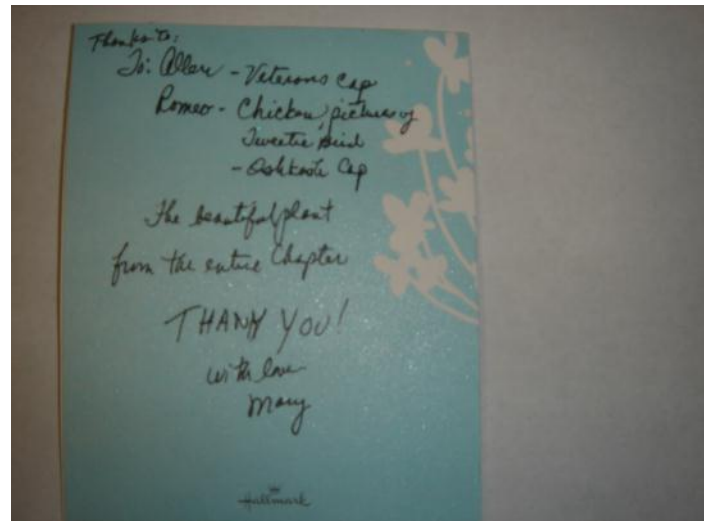 Thanks to:
To: Allen - Veterans Cap
Romeo - Chicken, pictures of
Tweetie Bird
- Oshkosh Cap
The beautiful plant
from the entire Chapter
THANK YOU!
with love
Mary
Hallmark